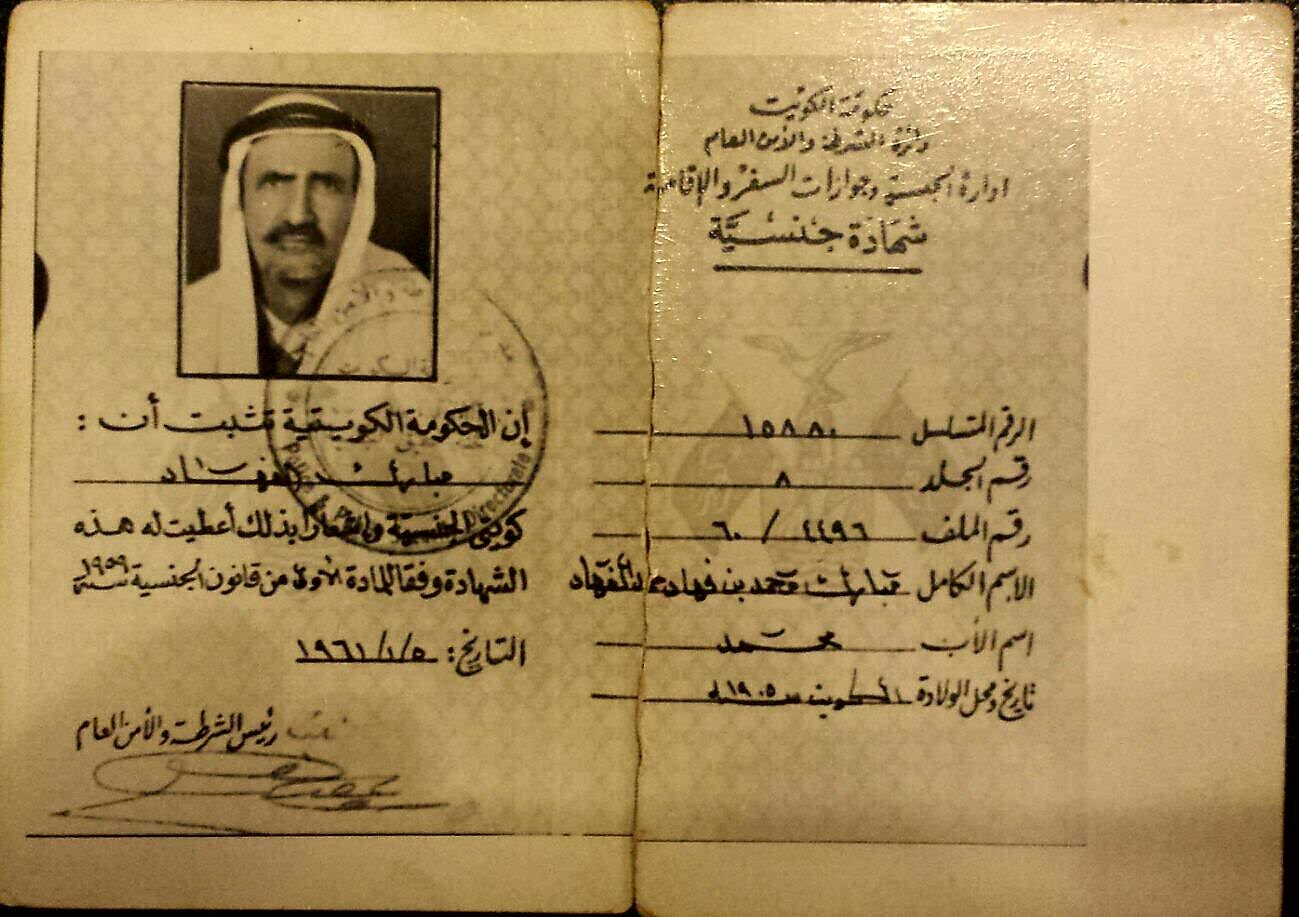 حكومة الكويت
دائرة الشرطة والأمن العام
ادارة الجنسية وجوازات السفر والإقامة
شهادة جنسيّة
الرقم المتسلسل ١٥٨٨٠
رقم المجلد ٨
رقم الملف ٤٤٩٦ / ٦٠
الاسم الكامل مبارك محمد بن فهاد الفهاد
اسم الأب محمد
تاريخ ومحل الولادة الكويت سنة ١٩٠٥
إن الحكومة الكويتية تثبت أن :
مبارك الفهاد
كويتي الجنسية واشعارا بذلك أعطيت له هذه
الشهادة وفقا للمادة الأولى من قانون الجنسية سنة ١٩٥٩
التاريخ : ١٩٦١/١/٥
رئيس الشرطة والأمن العام
Directorate